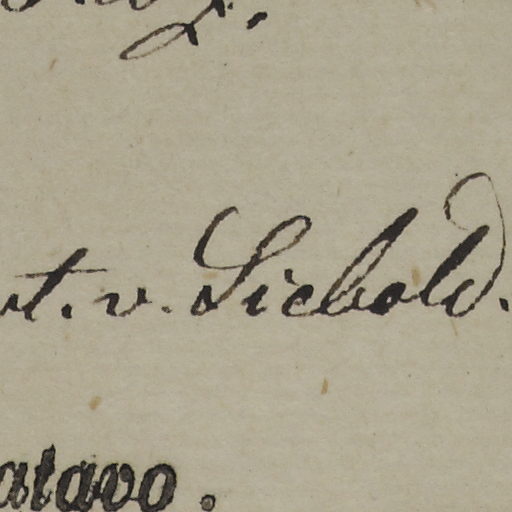 t. v. Siebold.
atavo.